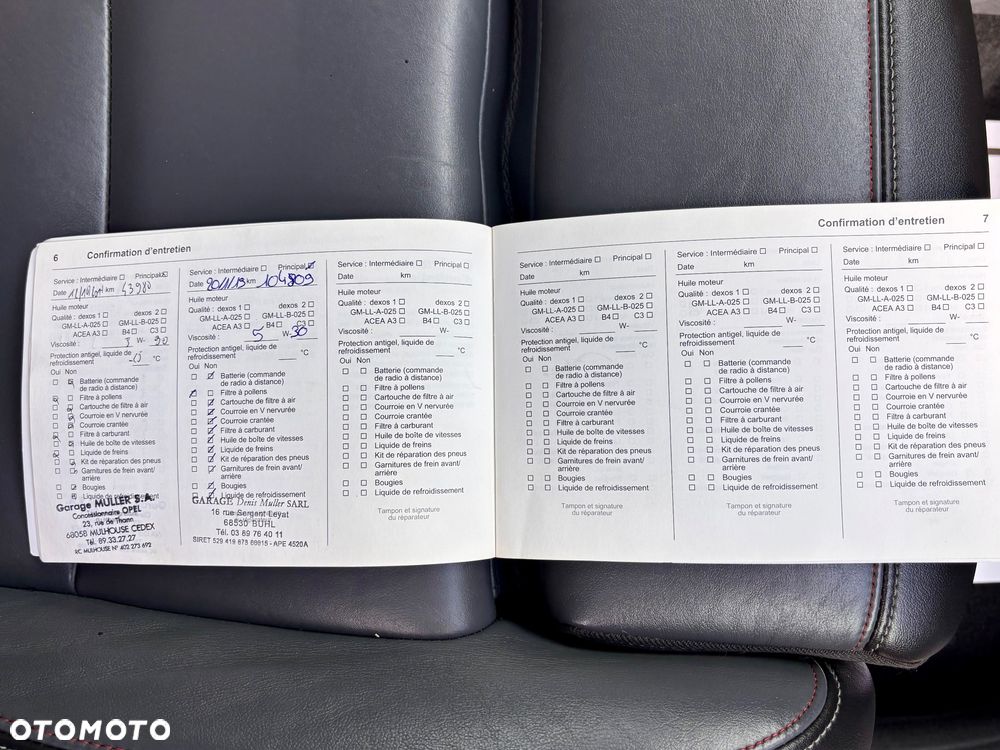 6 Confirmation d'entretien
Service : Intermédiaire □ Principal ☒
Date km 43980
Huile moteur
Qualité : dexos 1 □ dexos 2 □
GM-LL-A-025 □ GM-LL-B-025 □
ACEA A3 □ B4 □ C3 □
Viscosité : W- 30
Protection antigel, liquide de
refroidissement -15 °C
Oui Non
Batterie (commande
de radio à distance)
Filtre à pollens
Cartouche de filtre à air
Courroie en V nervurée
Courroie crantée
Filtre à carburant
Huile de boîte de vitesses
Liquide de freins
Kit de réparation des pneus
Garnitures de frein avant/
arrière
Bougies
Liquide de refroidissement
Garage MULLER S.A.
Concessionnaire OPEL
23, rue de Thann
68058 MULHOUSE CEDEX
Tél. 89.33.27.27
RC MULHOUSE N° 402 273 692
Service : Intermédiaire □ Principal ☑
Date 20/11/19 km 104809
Huile moteur
Qualité : dexos 1 □ dexos 2 □
GM-LL-A-025 □ GM-LL-B-025 □
ACEA A3 □ B4 □ C3 □
Viscosité : 5 W- 30
Protection antigel, liquide de
refroidissement °C
Oui Non
Batterie (commande
de radio à distance)
Filtre à pollens
Cartouche de filtre à air
Courroie en V nervurée
Courroie crantée
Filtre à carburant
Huile de boîte de vitesses
Liquide de freins
Kit de réparation des pneus
Garnitures de frein avant/
arrière
Bougies
Liquide de refroidissement
GARAGE Denis Muller SARL
16 rue Sergent Leyat
68530 BUHL
Tél. 03 89 76 40 11
SIRET 529 419 673 - APE 4520A
Service : Intermédiaire □ Principal □
Date km
Huile moteur
Qualité : dexos 1 □ dexos 2 □
GM-LL-A-025 □ GM-LL-B-025 □
ACEA A3 □ B4 □ C3 □
Viscosité : W-
Protection antigel, liquide de
refroidissement °C
Oui Non
□ □ Batterie (commande
de radio à distance)
□ □ Filtre à pollens
□ □ Cartouche de filtre à air
□ □ Courroie en V nervurée
□ □ Courroie crantée
□ □ Filtre à carburant
□ □ Huile de boîte de vitesses
□ □ Liquide de freins
□ □ Kit de réparation des pneus
□ □ Garnitures de frein avant/
arrière
□ □ Bougies
□ □ Liquide de refroidissement
Tampon et signature
du réparateur
Confirmation d'entretien 7
Service : Intermédiaire □ Principal □
Date km
Huile moteur
Qualité : dexos 1 □ dexos 2 □
GM-LL-A-025 □ GM-LL-B-025 □
ACEA A3 □ B4 □ C3 □
Viscosité : W-
Protection antigel, liquide de
refroidissement °C
Oui Non
□ □ Batterie (commande
de radio à distance)
□ □ Filtre à pollens
□ □ Cartouche de filtre à air
□ □ Courroie en V nervurée
□ □ Courroie crantée
□ □ Filtre à carburant
□ □ Huile de boîte de vitesses
□ □ Liquide de freins
□ □ Kit de réparation des pneus
□ □ Garnitures de frein avant/
arrière
□ □ Bougies
□ □ Liquide de refroidissement
Tampon et signature
du réparateur
Service : Intermédiaire □ Principal □
Date km
Huile moteur
Qualité : dexos 1 □ dexos 2 □
GM-LL-A-025 □ GM-LL-B-025 □
ACEA A3 □ B4 □ C3 □
Viscosité : W-
Protection antigel, liquide de
refroidissement °C
Oui Non
□ □ Batterie (commande
de radio à distance)
□ □ Filtre à pollens
□ □ Cartouche de filtre à air
□ □ Courroie en V nervurée
□ □ Courroie crantée
□ □ Filtre à carburant
□ □ Huile de boîte de vitesses
□ □ Liquide de freins
□ □ Kit de réparation des pneus
□ □ Garnitures de frein avant/
arrière
□ □ Bougies
□ □ Liquide de refroidissement
Tampon et signature
du réparateur
Service : Intermédiaire □ Principal □
Date km
Huile moteur
Qualité : dexos 1 □ dexos 2 □
GM-LL-A-025 □ GM-LL-B-025 □
ACEA A3 □ B4 □ C3 □
Viscosité : W-
Protection antigel, liquide de
refroidissement °C
Oui Non
□ □ Batterie (commande
de radio à distance)
□ □ Filtre à pollens
□ □ Cartouche de filtre à air
□ □ Courroie en V nervurée
□ □ Courroie crantée
□ □ Filtre à carburant
□ □ Huile de boîte de vitesses
□ □ Liquide de freins
□ □ Kit de réparation des pneus
□ □ Garnitures de frein avant/
arrière
□ □ Bougies
□ □ Liquide de refroidissement
Tampon et signature
du réparateur
OTOMOTO